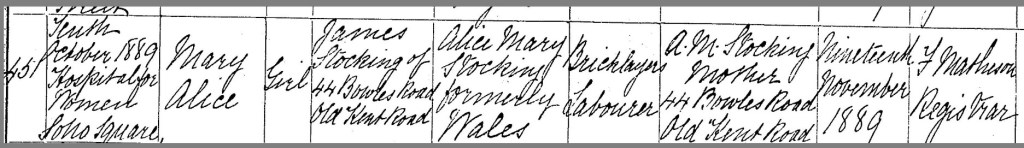 451
Tenth
October, 1889
Hospital for
Women
Soho Square,
Mary
Alice
Girl
James
Stocking of
44 Bowles Road
Old Kent Road
Alice Mary
Stocking
formerly
Wales
Bricklayers
Labourer
A. M. Stocking
Mother
44 Bowles Road
Old Kent Road
Nineteenth
November
1889
F Matheson
Registrar